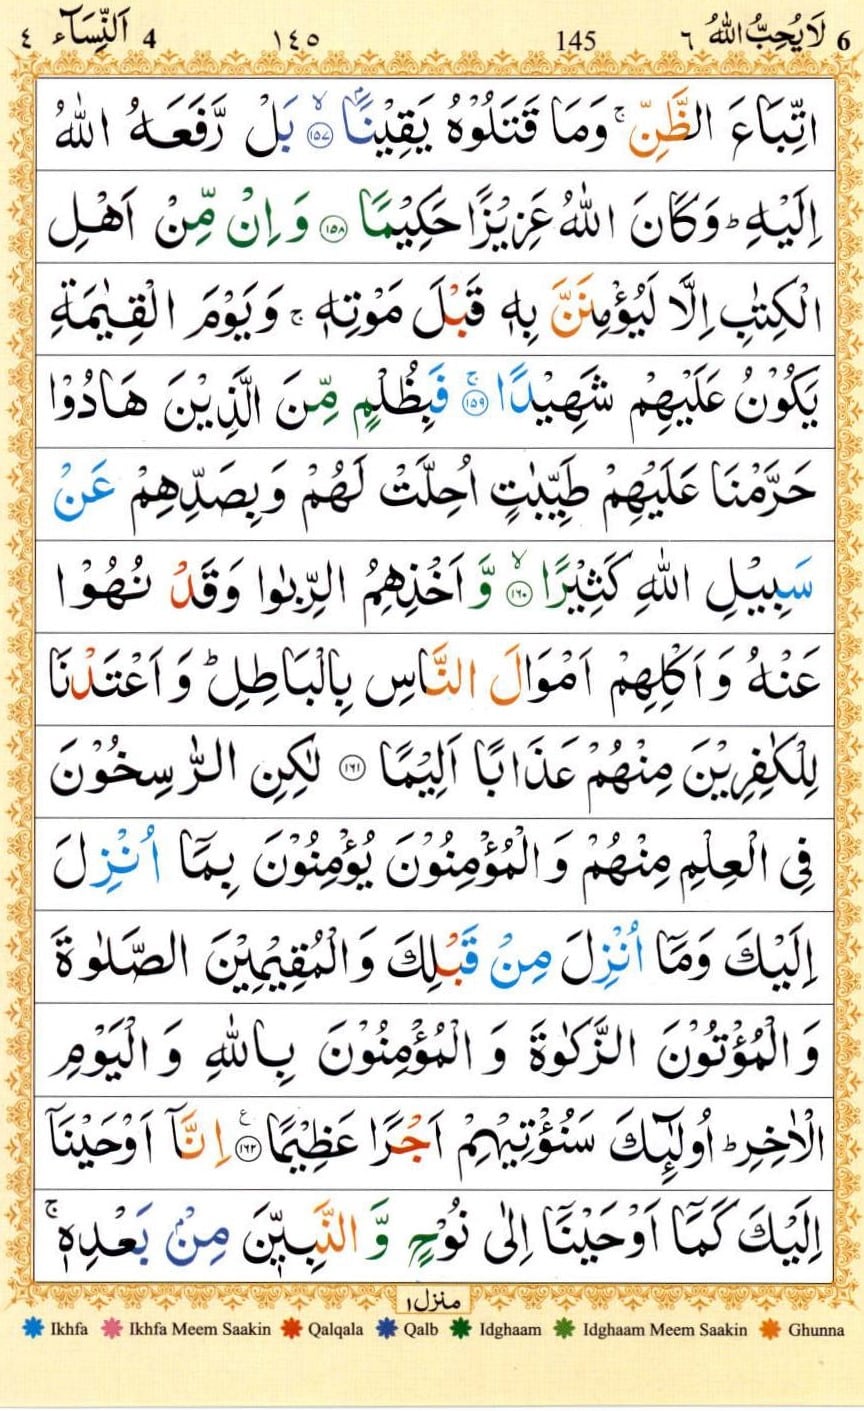 6 لَا يُحِبُّ اللّٰهُ ٦ 145 ١٤٥ 4 اَلنِّسَآء ٤
اتِّبَاعَ الظَّنِّ ۚ وَمَا قَتَلُوْهُ يَقِيْنًۢا ۙ﴿۱۵۷﴾ بَلْ رَّفَعَهُ اللّٰهُ
اِلَيْهِ ؕ وَكَانَ اللّٰهُ عَزِيْزًا حَكِيْمًا ﴿۱۵۸﴾ وَاِنْ مِّنْ اَهْلِ
الْكِتٰبِ اِلَّا لَيُؤْمِنَنَّ بِهٖ قَبْلَ مَوْتِهٖ ۚ وَيَوْمَ الْقِيٰمَةِ
يَكُوْنُ عَلَيْهِمْ شَهِيْدًا ۚ﴿۱۵۹﴾ فَبِظُلْمٍ مِّنَ الَّذِيْنَ هَادُوْا
حَرَّمْنَا عَلَيْهِمْ طَيِّبٰتٍ اُحِلَّتْ لَهُمْ وَبِصَدِّهِمْ عَنْ
سَبِيْلِ اللّٰهِ كَثِيْرًا ۙ﴿۱۶۰﴾ وَّاَخْذِهِمُ الرِّبٰوا وَقَدْ نُهُوْا
عَنْهُ وَاَكْلِهِمْ اَمْوَالَ النَّاسِ بِالْبَاطِلِ ؕ وَاَعْتَدْنَا
لِلْكٰفِرِيْنَ مِنْهُمْ عَذَابًا اَلِيْمًا ﴿۱۶۱﴾ لٰكِنِ الرّٰسِخُوْنَ
فِى الْعِلْمِ مِنْهُمْ وَالْمُؤْمِنُوْنَ يُؤْمِنُوْنَ بِمَاۤ اُنْزِلَ
اِلَيْكَ وَمَاۤ اُنْزِلَ مِنْ قَبْلِكَ وَالْمُقِيْمِيْنَ الصَّلٰوةَ
وَالْمُؤْتُوْنَ الزَّكٰوةَ وَالْمُؤْمِنُوْنَ بِاللّٰهِ وَالْيَوْمِ
الْاٰخِرِ ؕ اُولٰٓئِكَ سَنُؤْتِيْهِمْ اَجْرًا عَظِيْمًا ﴿۱۶۲﴾ ع اِنَّاۤ اَوْحَيْنَاۤ
اِلَيْكَ كَمَاۤ اَوْحَيْنَاۤ اِلٰى نُوْحٍ وَّالنَّبِيّٖنَ مِنْۢ بَعْدِهٖ ۚ
منزل ۱
Ikhfa Ikhfa Meem Saakin Qalqala Qalb Idghaam Idghaam Meem Saakin Ghunna